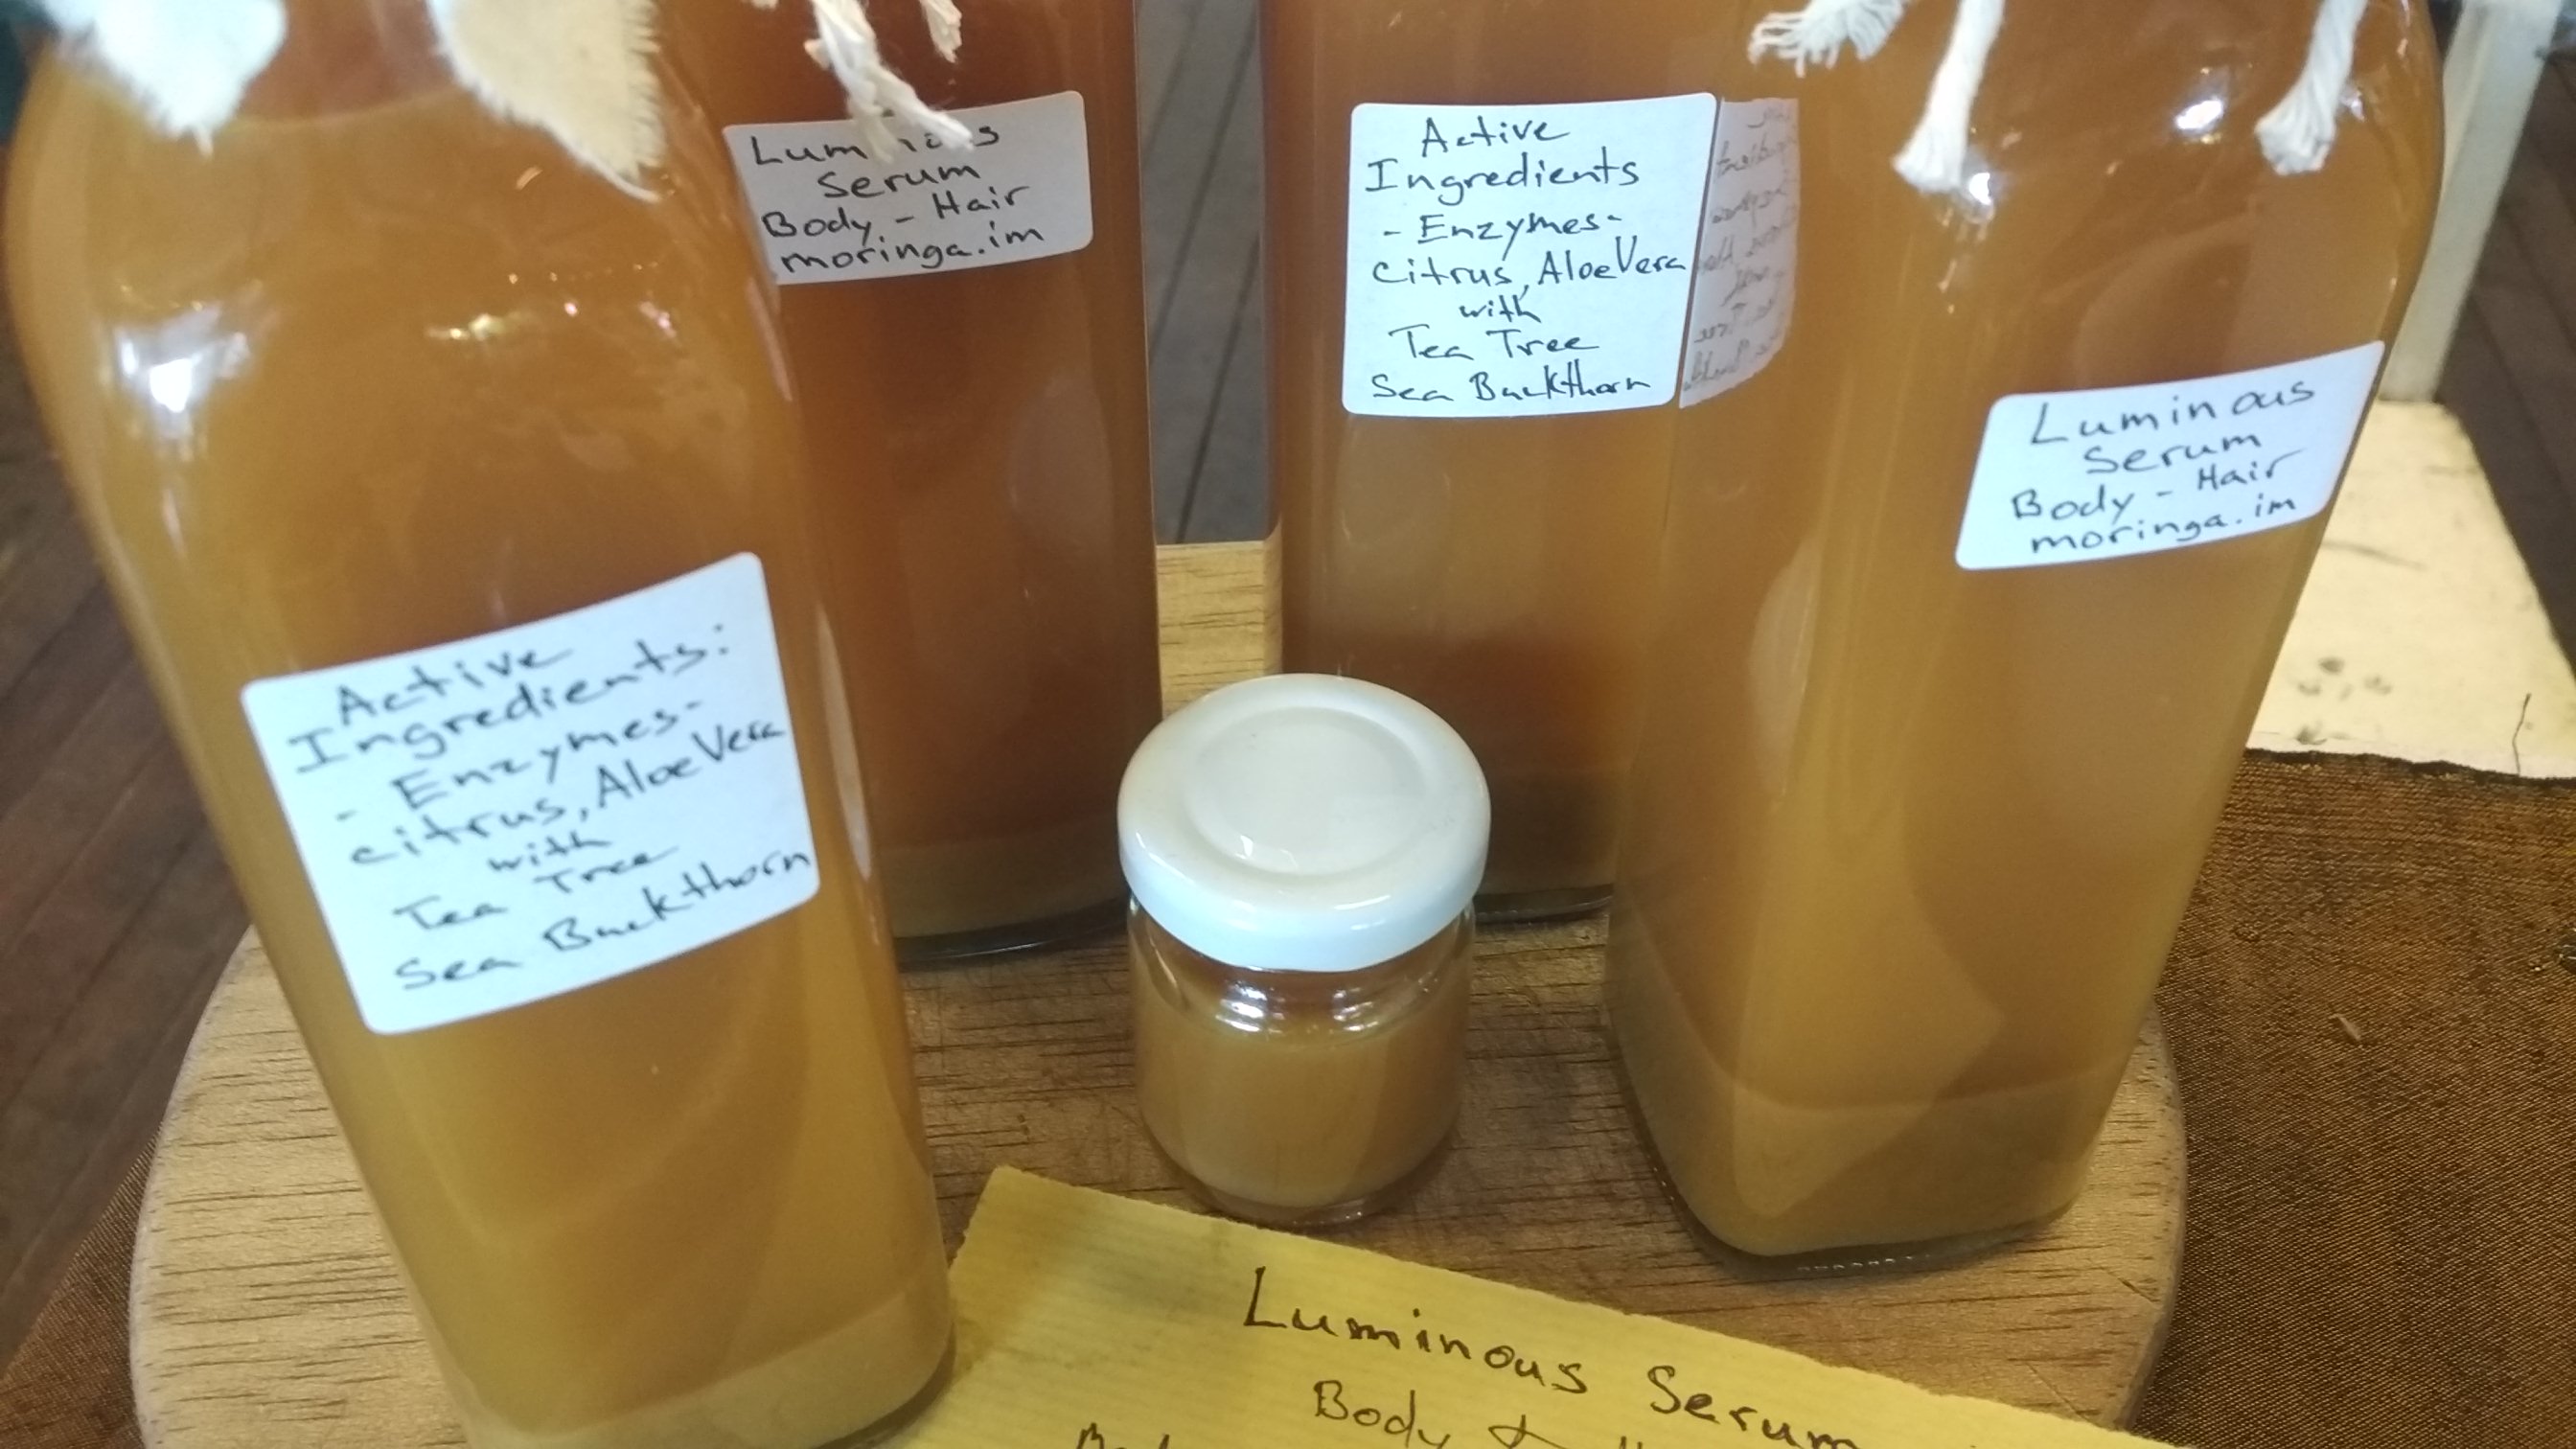 Serum
Body - Hair
moringa.im
Active
Ingredients
- Enzymes-
citrus, Aloe Vera
with
Tea Tree
Sea Buckthorn
Luminous
Serum
Body - Hair
moringa.im
Active
Ingredients:
- Enzymes-
citrus, Aloe Vera
with
Tea Tree
Sea Buckthorn
Luminous Serum
Body &